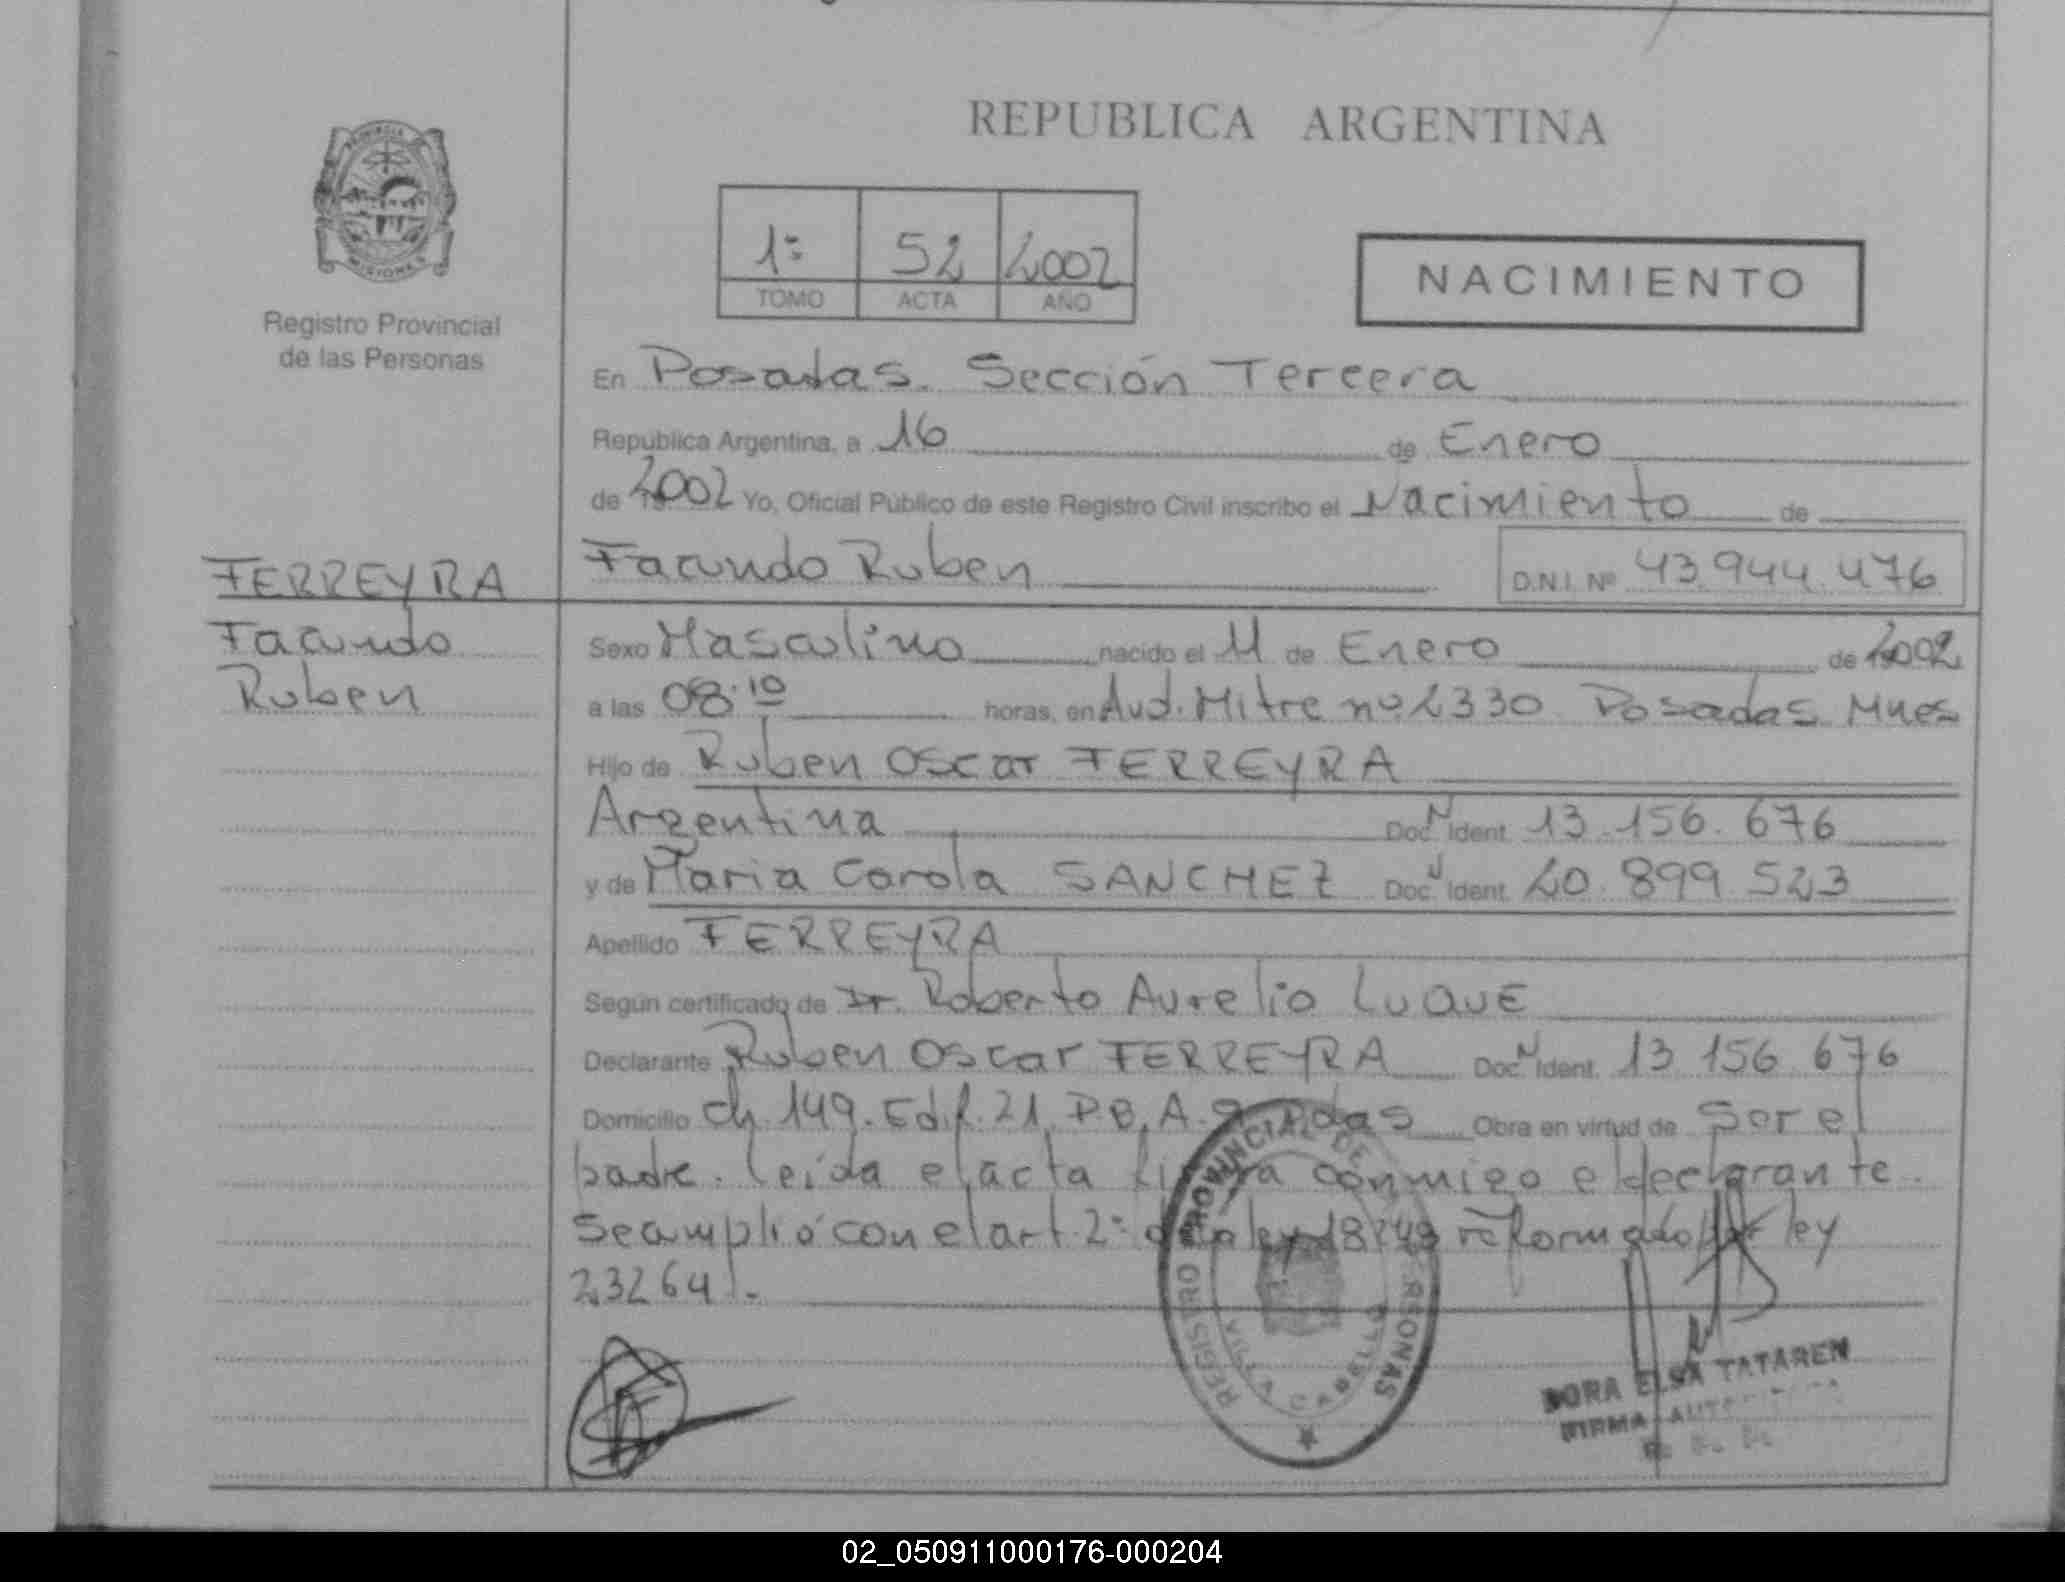 REPUBLICA ARGENTINA
PROVINCIA
MISIONES
Registro Provincial
de las Personas
1º 52 2002
TOMO ACTA AÑO
NACIMIENTO
En Posadas. Sección Tercera
República Argentina, a 16 de Enero
de 2002 Yo, Oficial Público de este Registro Civil inscribo el Nacimiento de
FERREYRA Facundo Ruben D.N.I. Nº 43.944.476
Facundo
Ruben
Sexo Masculino nacido el 11 de Enero de 2002
a las 08.10 horas, en Avd. Mitre nº 2330 Posadas Mnes
Hijo de Ruben Oscar FERREYRA
Argentina Doc. N Ident. 13.156.676
y de Maria Carola SANCHEZ Doc. N Ident. 20.899.523
Apellido FERREYRA
Según certificado de Dr. Roberto Aurelio LUQUE
Declarante Ruben Oscar FERREYRA Doc. N Ident. 13.156.676
Domicilio ch. 149. Edif. 21. P.B. A. Pdas Obra en virtud de Ser el
padre. leida el acta firma conmigo el declarante.
Se amplió con el art. 2º de la ley 18248 reformado por ley
23264.-
REGISTRO PROVINCIAL DE PERSONAS
VILLA CABELLO
DORA ELSA TATAREN
FIRMA
02_050911000176-000204